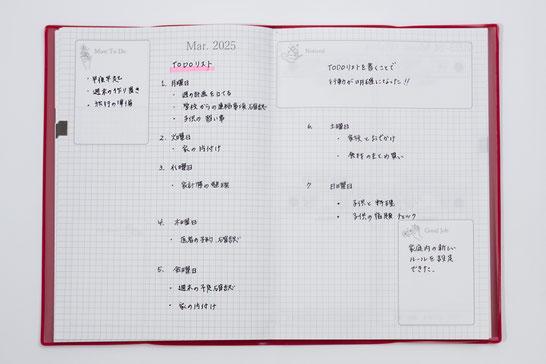 Must To Do
・早寝早起き
・週末の作り置き
・旅行の準備
Mar. 2025
TODOリスト
1. 月曜日
・週の計画を立てる
・学校からの連絡事項確認
・子供の習い事
2. 火曜日
・家の片付け
3. 水曜日
・家計簿の整理
4. 木曜日
・医者の予約確認
5. 金曜日
・週末の予定確認
・家の片付け
Noticed
TODOリストを書くことで
行動が明確になった!!
6. 土曜日
・家族とおでかけ
・食材のまとめ買い
7. 日曜日
・子供と料理
・子供の宿題チェック
Good Job
家庭内の新しい
ルールを設定
できた。